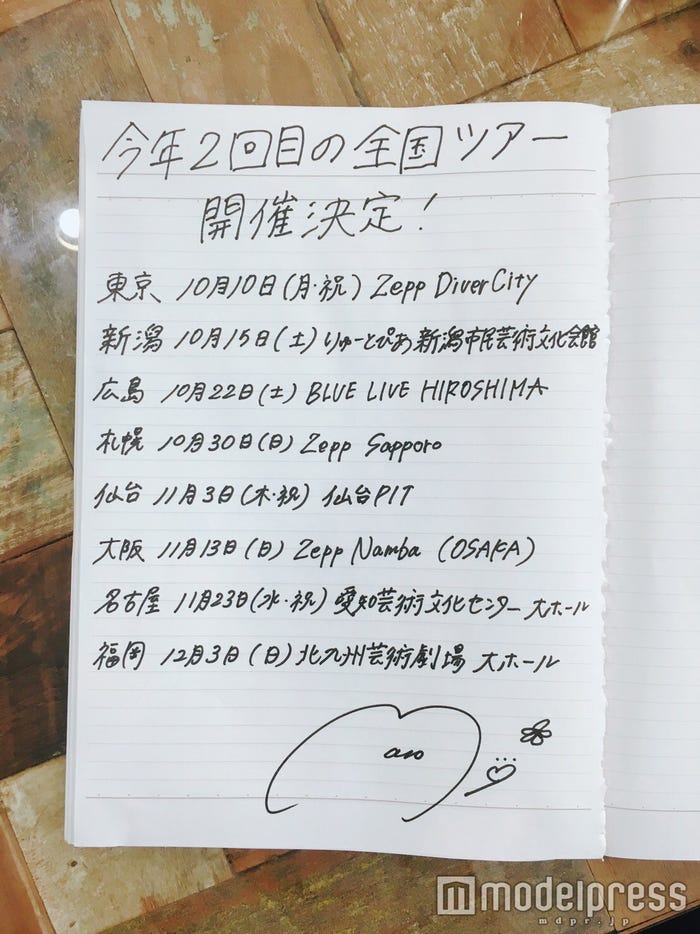 今年2回目の全国ツアー
開催決定!
東京 10月10日(月・祝) Zepp DiverCity
新潟 10月15日(土)りゅーとぴあ 新潟市民芸術文化会館
広島 10月22日(土) BLUE LIVE HIROSHIMA
札幌 10月30日(日) Zepp Sapporo
仙台 11月3日(木・祝) 仙台PIT
大阪 11月13日(日) Zepp Namba (OSAKA)
名古屋 11月23日(水・祝) 愛知芸術文化センター 大ホール
福岡 12月3日(日)北九州芸術劇場 大ホール
modelpress
mdpr.jp